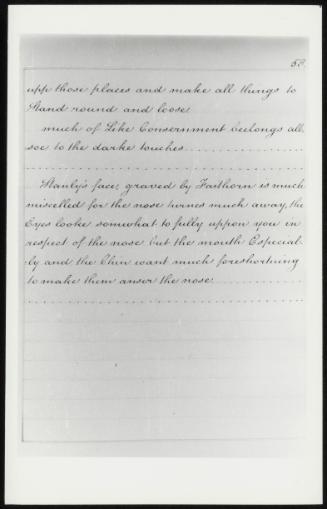 58.
upp those places and make all things to
stand round and loose
much of Like Consernment beelongs all.
soe to the darke touches . . . . . . . . . . . . . . . .
. . . . . . . . . . . . . . . . . . . . . . . . . . . . . . . . . . . . . . .
Stanly's face, graved by Faithorn is much
miscelled for the nose turnes much away, the
Eyes looke somewhat to fully uppon you in
respect of the nose but the mouth Especial.
ly and the Chin want much foreshortning
to make them anser the nose . . . . . . . . . . . . .
. . . . . . . . . . . . . . . . . . . . . . . . . . . . . . . . . . . . . . .